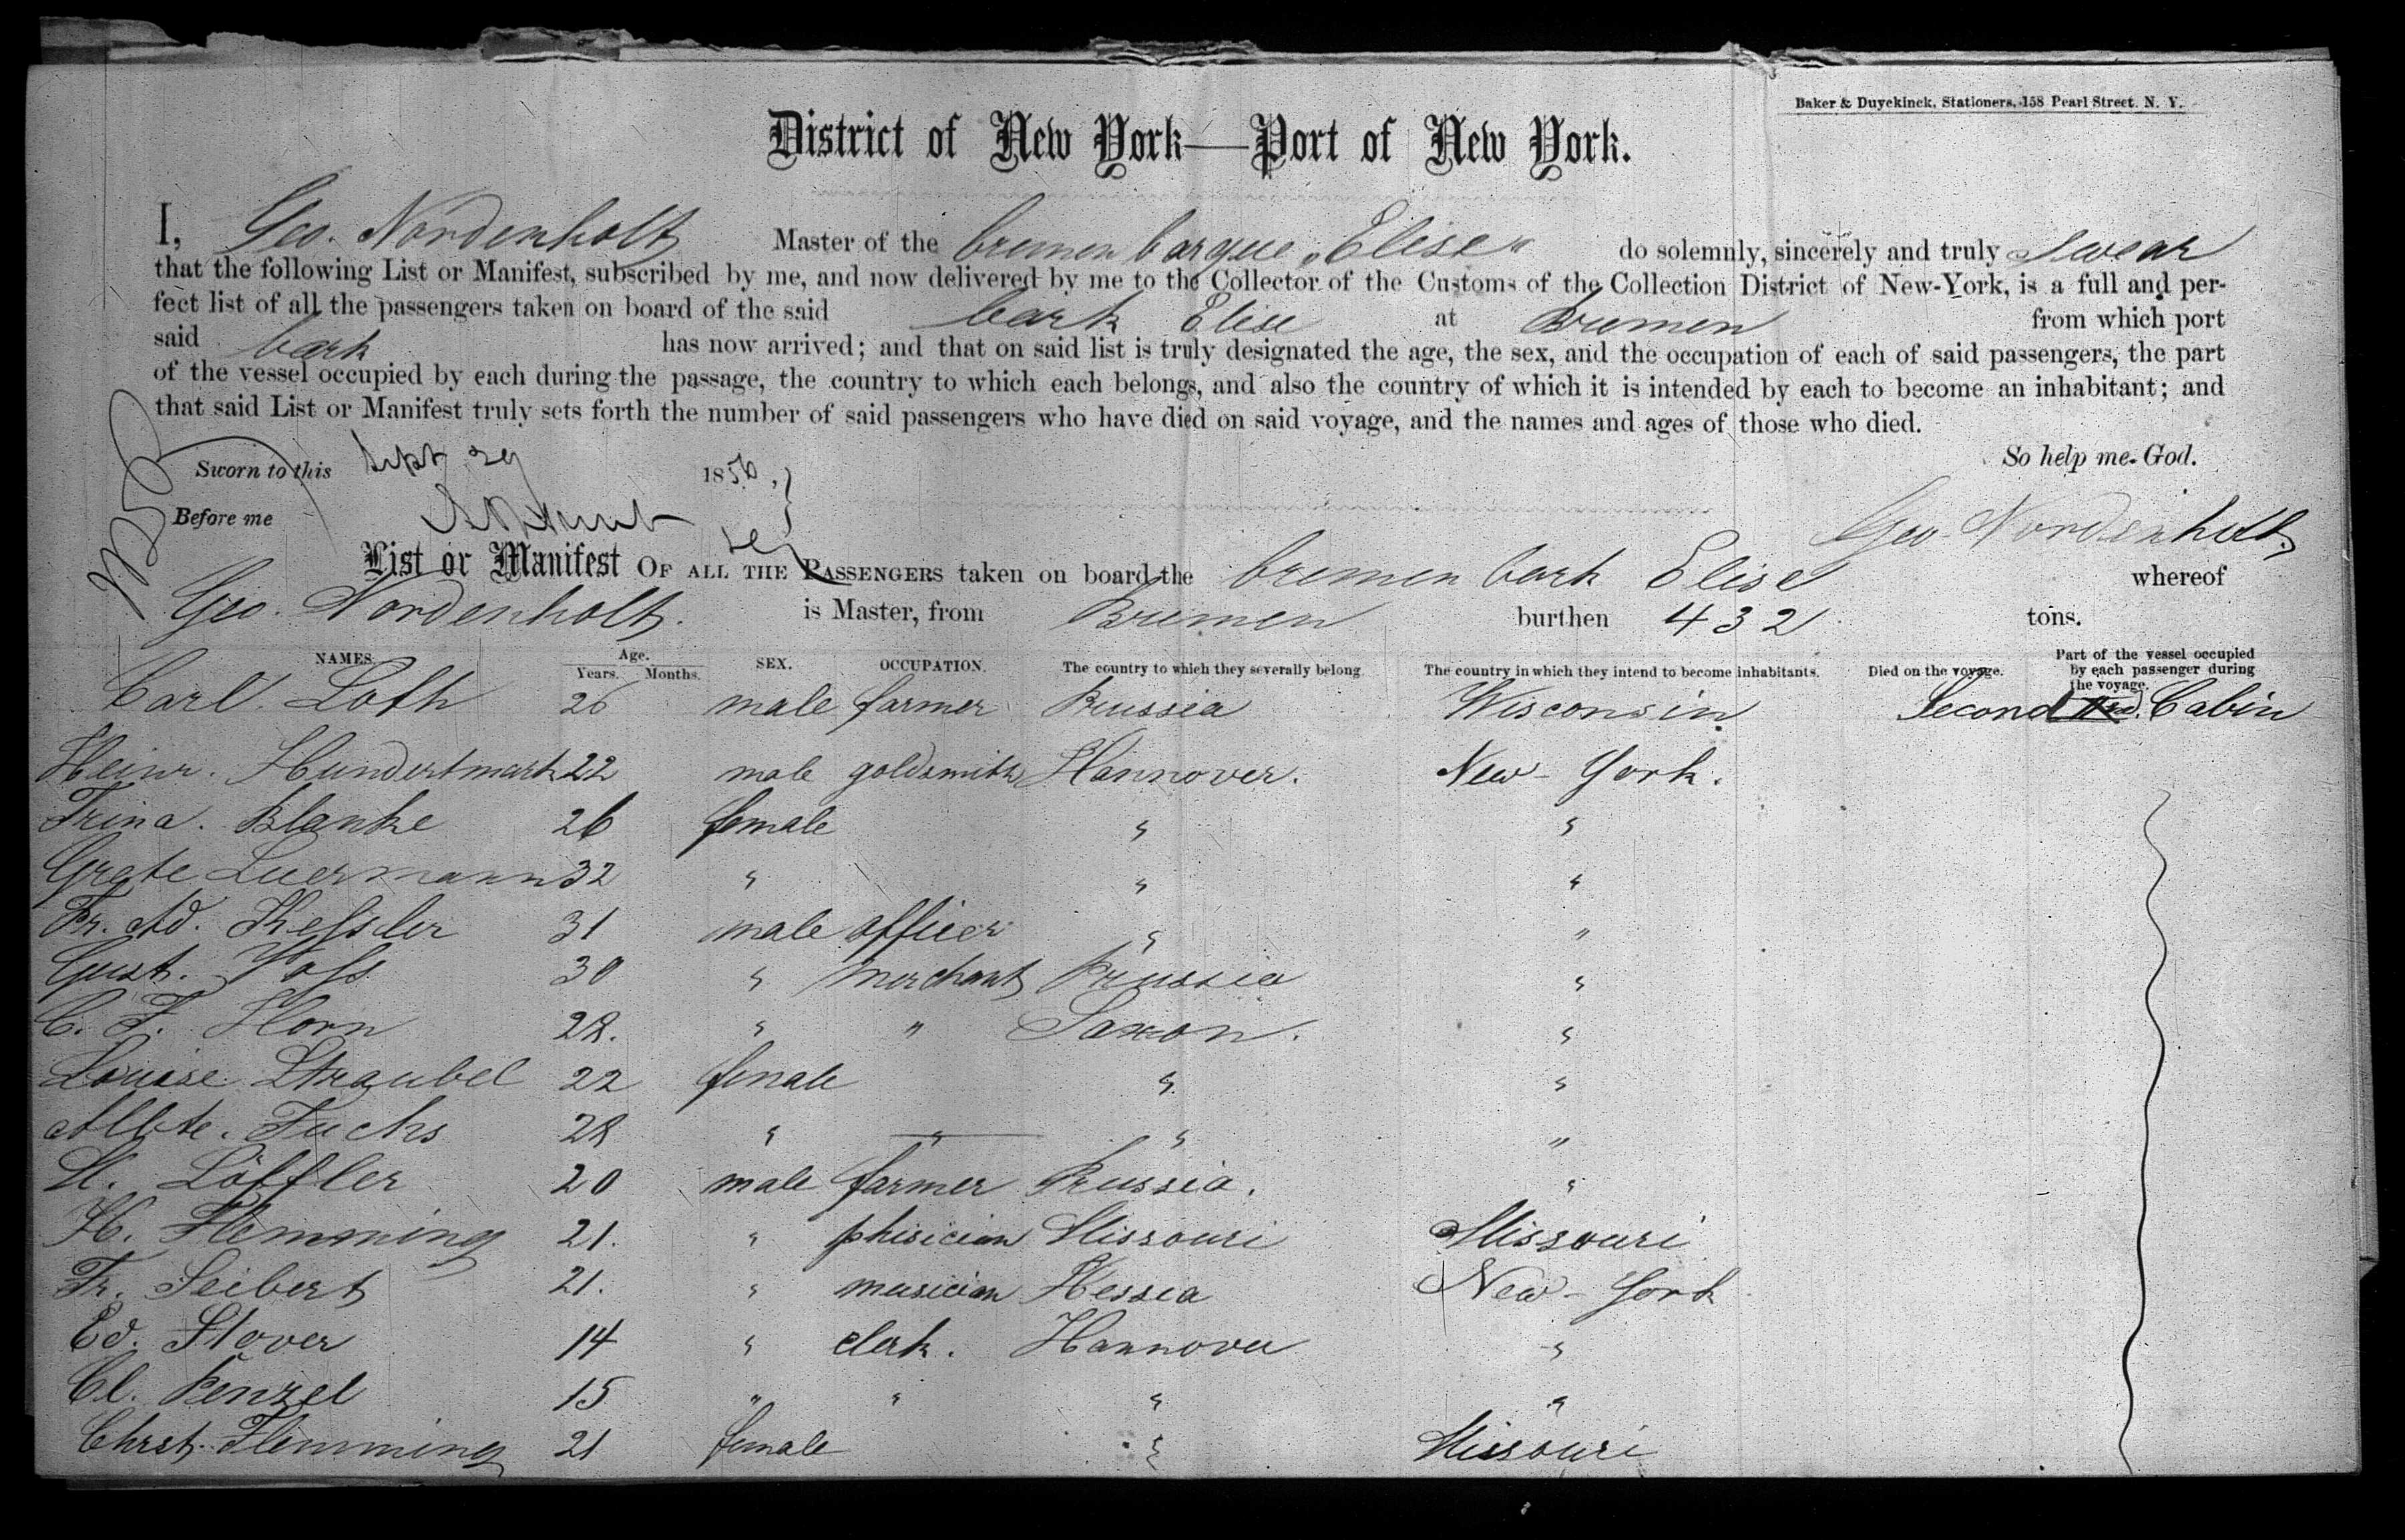 Baker & Duyckinck, Stationers, 158 Pearl Street. N. Y.
District of New York—Port of New York.
I, Geo. Nordenholt Master of the bremen barque „Elise“ do solemnly, sincerely and truly swear
that the following List or Manifest, subscribed by me, and now delivered by me to the Collector of the Customs of the Collection District of New-York, is a full and per-
fect list of all the passengers taken on board of the said bark Elise at Bremen from which port
said bark has now arrived; and that on said list is truly designated the age, the sex, and the occupation of each of said passengers, the part
of the vessel occupied by each during the passage, the country to which each belongs, and also the country of which it is intended by each to become an inhabitant; and
that said List or Manifest truly sets forth the number of said passengers who have died on said voyage, and the names and ages of those who died.
So help me God.
Sworn to this Sept 29 1856,
Before me
Geo. Nordenholt
List or Manifest OF ALL THE PASSENGERS taken on board the bremen bark Elise whereof
Geo. Nordenholt. is Master, from Bremen burthen 432 tons.
NAMES. Age. Years. Months. SEX. OCCUPATION. The country to which they severally belong. The country in which they intend to become inhabitants. Died on the voyage. Part of the vessel occupied by each passenger during the voyage.
Carl. Loth 26 male farmer Prussia Wisconsin Second Cabin
Heinr. Hundertmark 22 male goldsmith Hannover. New-York.
Trina. Blanke 26 female " "
Grete Luermann 32 " " "
Fr. Ad. Kessler 31 male officer " "
Gust. Voss 30 " merchant Prussia "
C. F. Horn 28. " " Saxon. "
Louise Straubel 22 female " "
Albte. Fuchs 28 " " " "
H. Löffler 20 male farmer Prussia. "
H. Flemming 21. " phisician Missouri Missouri
Fr. Seibert 21. " musician Hessia New-York
Ed. Stover 14 " clerk. Hannover "
Cl. Penzel 15 " " " "
Christ. Flemming 21 female " Missouri